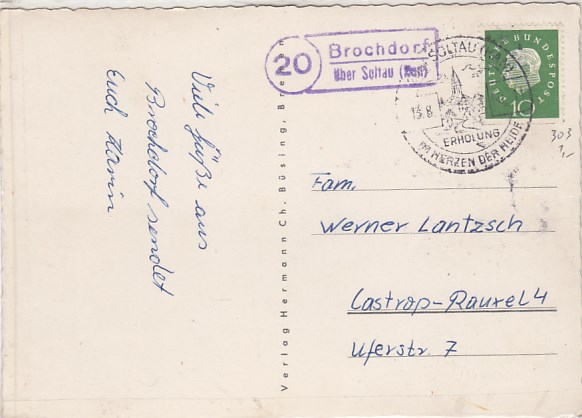 20
Brochdorf
über Soltau (Han)
SOLTAU
15.8.
ERHOLUNG
IM HERZEN DER HEIDE
DEUTSCHE BUNDESPOST
10
303
1,-
Viele Grüße aus
Brochdorf sendet
Euch Karin
Verlag Hermann Ch. Büsing, Bremen
Fam.
Werner Lantzsch
Castrop-Rauxel 4
Uferstr. 7